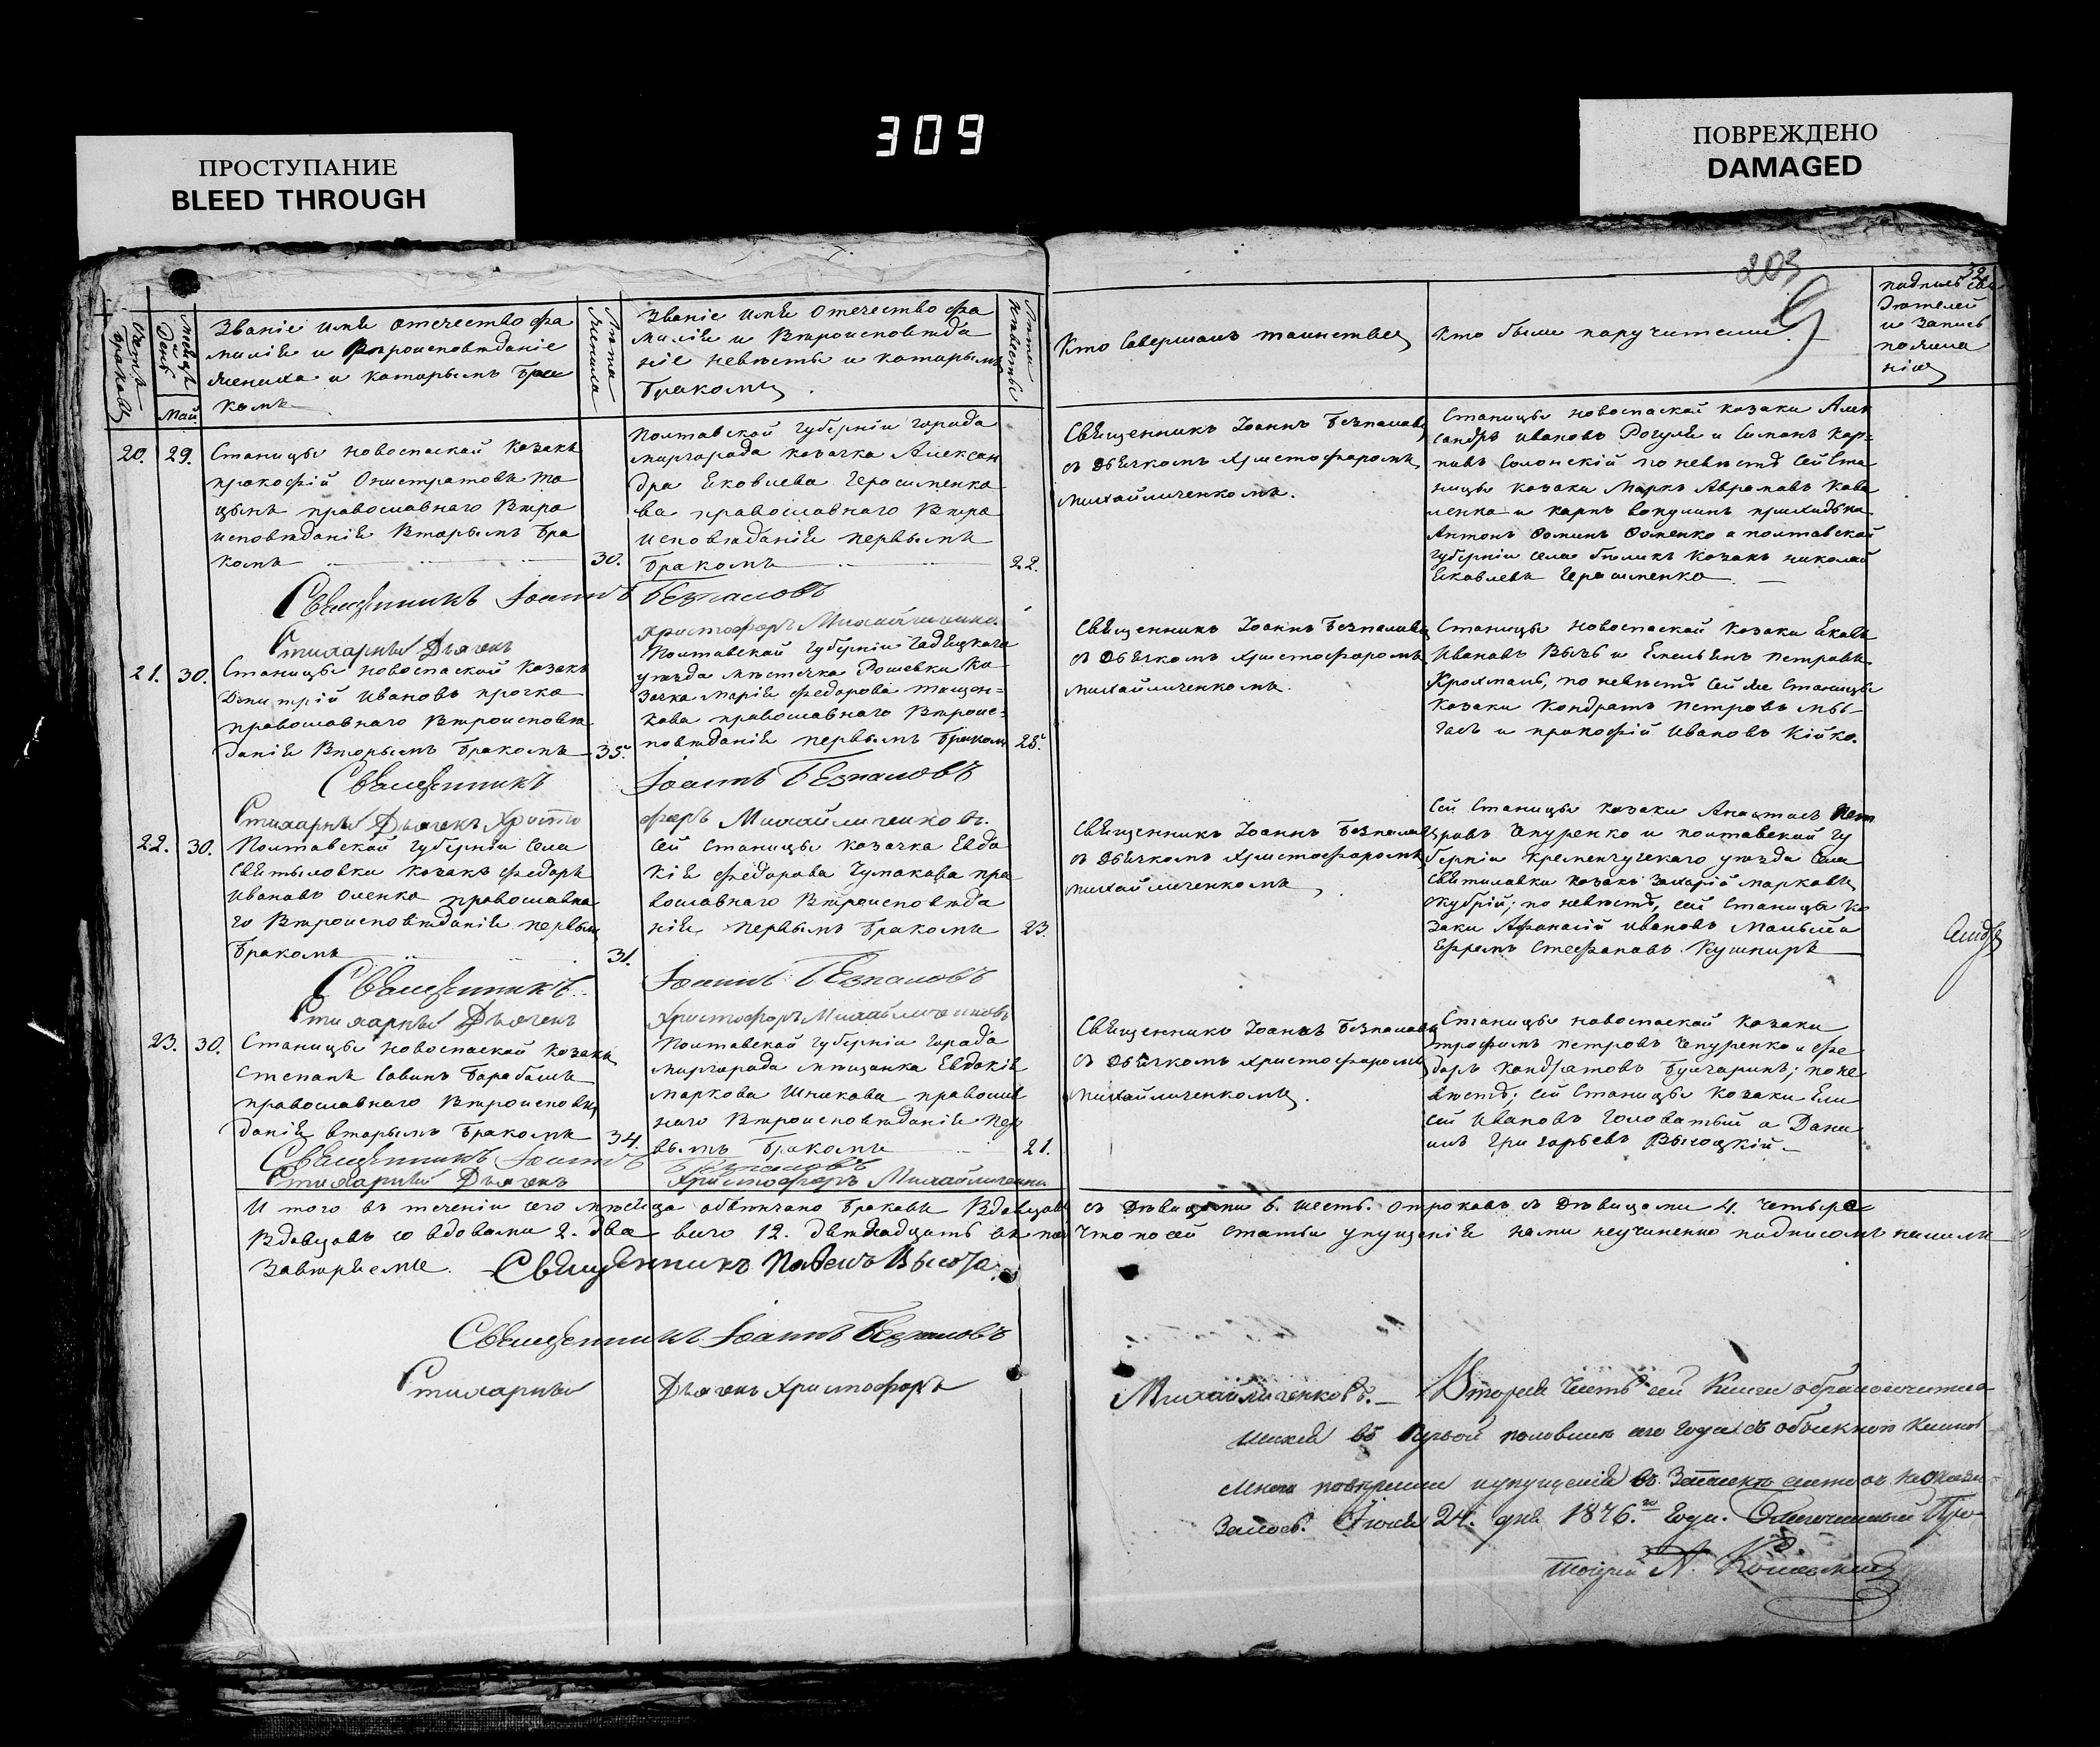 309
ПРОСТУПАНИЕ
BLEED THROUGH
ПОВРЕЖДЕНО
DAMAGED
203
Счетъ браковъ
Мѣсяцъ и День
Май
Званіе имя отечество фа
милія и вѣроисповѣданіе
жениха и которымъ бра
комъ
Лѣта жениха
Званіе имя отечество фа
милія и вѣроисповѣда
ніе невѣсты и которымъ
бракомъ
Лѣта невѣсты
Кто совершалъ таинство
Кто были паручители
подпись сви
дѣтелей
и запись
по
20. 29.
Станицы новоспаской козакъ
прокофій Онистратовъ
православнаго вѣро
исповѣданія вторымъ бра
комъ 30.
Полтавской губерніи города
миргорада козачка Алексан
дра Яковлева Герасименко
ва православнаго вѣро
исповѣданія первымъ
бракомъ 22.
Священникъ Іоаннъ Безпалов
съ дьячкомъ христофоромъ
михайличенкомъ.
Станицы новоспаской козаки Алек
сандръ ивановъ Рогуля и Симонъ кар=
повъ Солонскій по невѣстѣ сей ста
ницы козаки Маркъ Аврамовъ Кова
ленко и карпъ
Антонъ Фоминъ Фоменко а полтавской
губерніи села козакъ николай
Яковлевъ Герасименко
Священникъ Іоаннъ Безпаловъ
Стихарный Дьячекъ христофоръ Михайличенко
21. 30.
Станицы новоспаской козакъ
Дмитрій Ивановъ прочко
православнаго вѣроисповѣ
данія вторымъ бракомъ 35.
Полтавской губерніи Гадяцкаго
уѣзда мѣстечка Рошевки ка
зачка марія федорова тищен=
кова православнаго вѣроис=
повѣданія первымъ бракомъ 25.
Священникъ Іоаннъ Безпалов
съ дьячкомъ христофоромъ
михайличенкомъ.
Станицы новоспаской козаки Яковъ
Ивановъ и Емельянъ петровъ
Крохмаль, по невѣстѣ сей же станицы
козаки Кондратъ петровъ
и прокофій ивановъ Кійко.
Священникъ Іоаннъ Безпаловъ
Стихарный Дьячекъ Христо
форъ Михайличенковъ.
22. 30.
Полтавской губерніи села
Святиловки козакъ федоръ
ивановъ Оленко православна
го вѣроисповѣданія первым
бракомъ 31.
сей станицы козачка Евдо
кія федорова Чумакова пра
вославнаго вѣроисповѣда
нія первымъ бракомъ 23.
Священникъ Іоаннъ Безпалов
съ дьячкомъ христофоромъ
михайличенкомъ
сей станицы козаки пет
ровъ Чепуренко и полтавской гу
берніи кременчугскаго уѣзда села
святиловки козакъ Захарій марковъ
по невѣстѣ, сей станицы ко
заки Афанасій ивановъ
Ефремъ Стефановъ Кушниръ
Священникъ Іоаннъ Безпаловъ
Стихарный Дьячекъ Христофоръ Михайличенковъ
23. 30.
Станицы новоспаской козакъ
Степанъ савинъ Барабашъ
православнаго вѣроисповѣ
данія вторымъ бракомъ 34.
Полтавской губерніи города
миргорада мѣщанка Евдокія
маркова православ
наго вѣроисповѣданія пер
вымъ бракомъ 21.
Священникъ Іоаннъ Безпалов
съ дьячкомъ христофоромъ
михайличенкомъ.
Станицы новоспаской козаки
трофимъ петровъ Чепуренко и фе
доръ кондратовъ Булгаринъ; по не
вѣстѣ; сей станицы козаки Ели
сей ивановъ Головатый а Дани
илъ григорьевъ Высоцкій
Священникъ Іоаннъ Безпаловъ
Стихарный Дьячекъ Христофоръ Михайличенко
И того въ теченіи сего мѣсяца обвѣнчано браковъ вдовцовъ съ дѣвицами 6. шесть. отроковъ съ дѣвицами 4. четыре
вдовцовъ со вдовами 2. два всего 12. двѣнадцать что по сей статьи упущенія нами неучиненно подписомъ нашимъ
завѣряемъ. Священникъ Павелъ Высота
Священникъ Іоаннъ Безпаловъ
Стихарный Дьячекъ Христофоръ Михайличенковъ.
Вторая часть сей книги о бракосочетав
шихся въ первой половинѣ сего года съ обыскной книгой
мною повѣрена и упущеній въ
залось. Іюня 24. дня 1876.го года. Благочинный Про
тоіерей А.